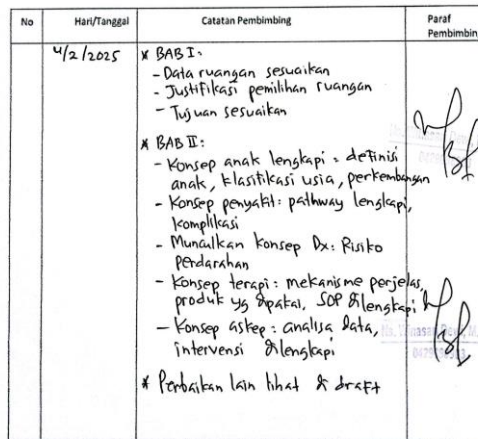 No Hari/Tanggal Catatan Pembimbing Paraf Pembimbing
4/2/2025 * BAB I:
- Data ruangan sesuaikan
- Justifikasi pemilihan ruangan
- Tujuan sesuaikan
* BAB II:
- Konsep anak lengkapi : definisi
anak, klasifikasi usia, perkembangan
- Konsep penyakit : pathway lengkapi,
komplikasi
- Munculkan konsep Dx : Risiko
perdarahan
- Konsep terapi : mekanisme perjelas,
produk yg dipakai, SOP dilengkapi
- Konsep askep : analisa data,
intervensi dilengkapi
* Perbaikan lain lihat di draft